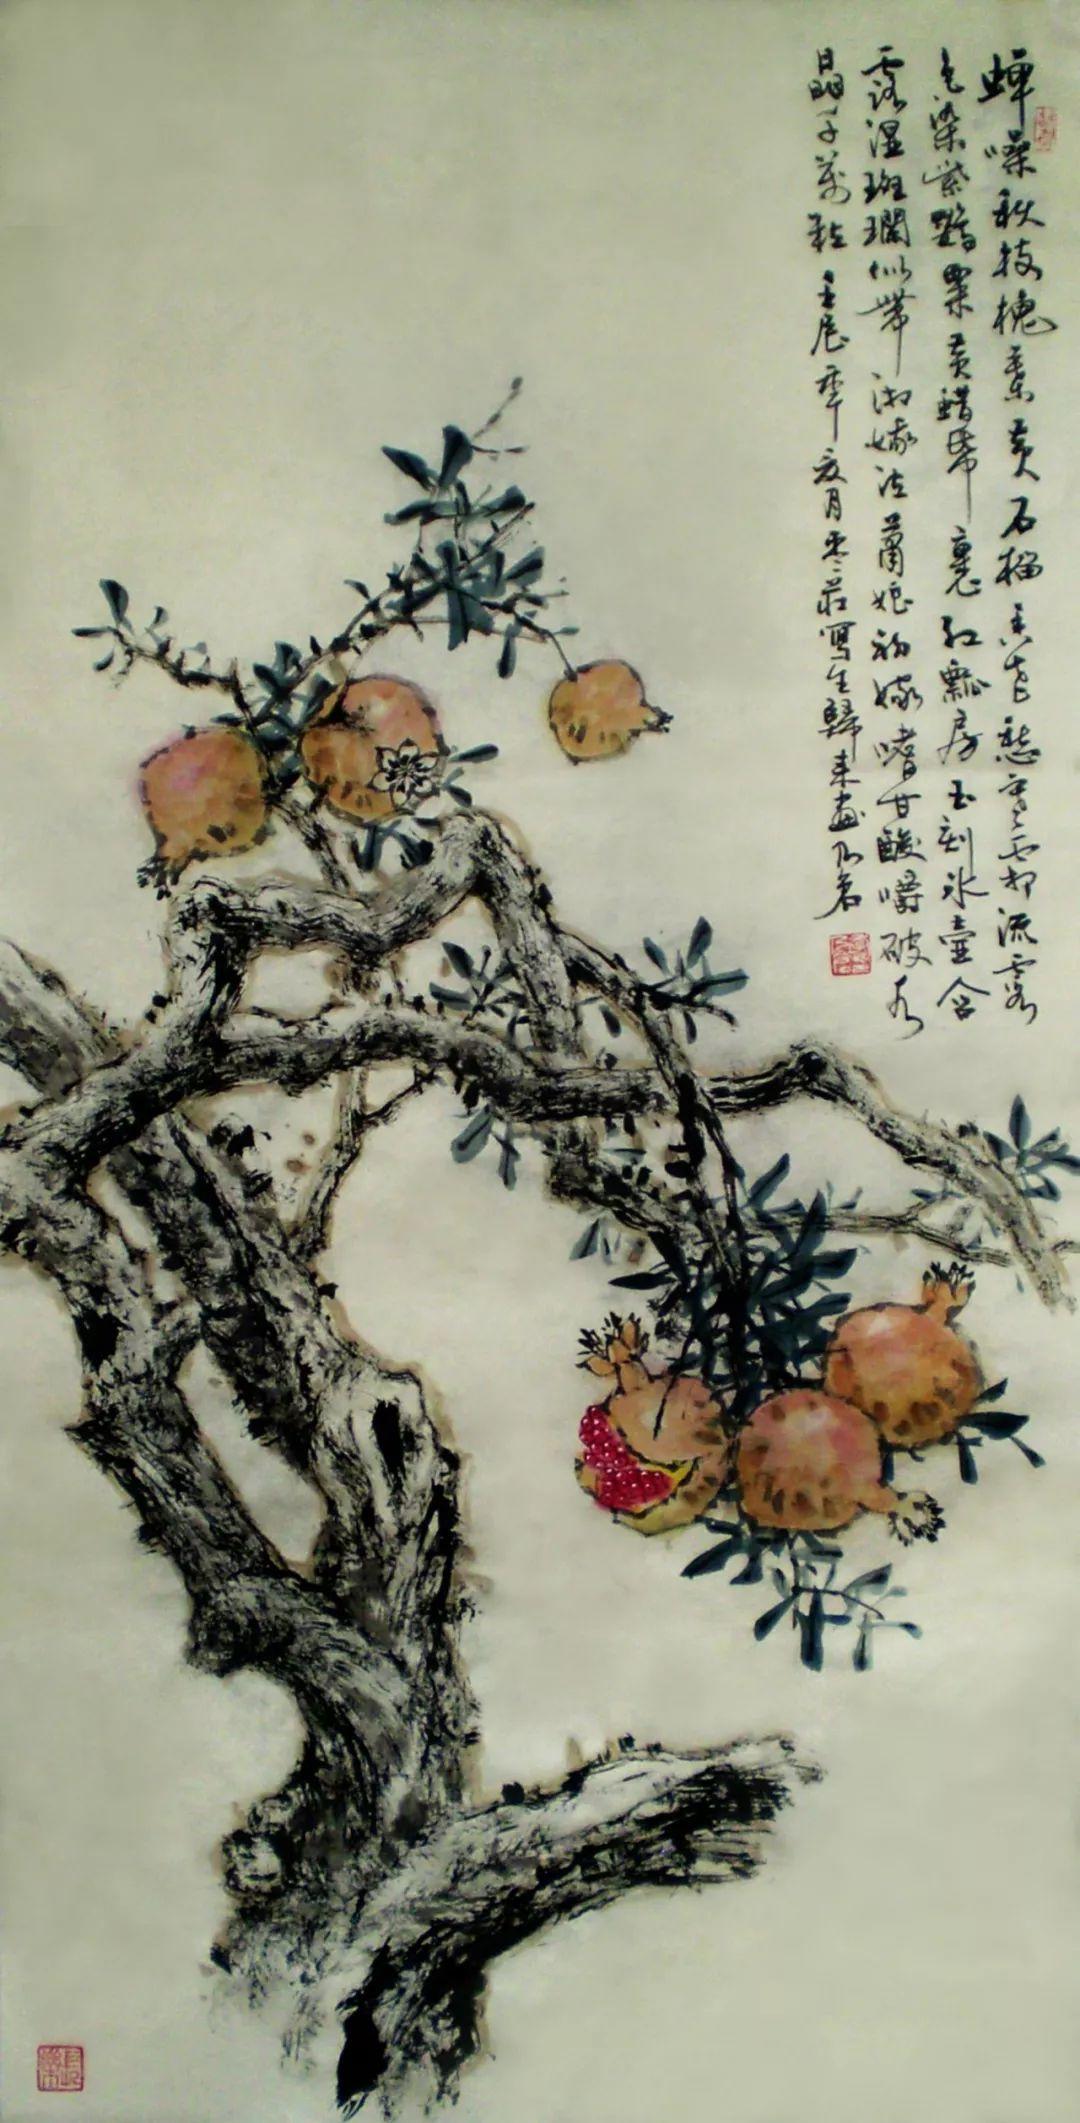 蟬噪秋枝槐葉黃石榴香老愁寒霜流霞
包染紫鸚粟黃蜡帋裹紅瓢房玉刻冰壺含
露湿斑瓓似帶湘娥泣蕭娘初嫁嗜甘酸嚼破水
晶千萬粒壬辰年夏月枣莊寫生歸來畫